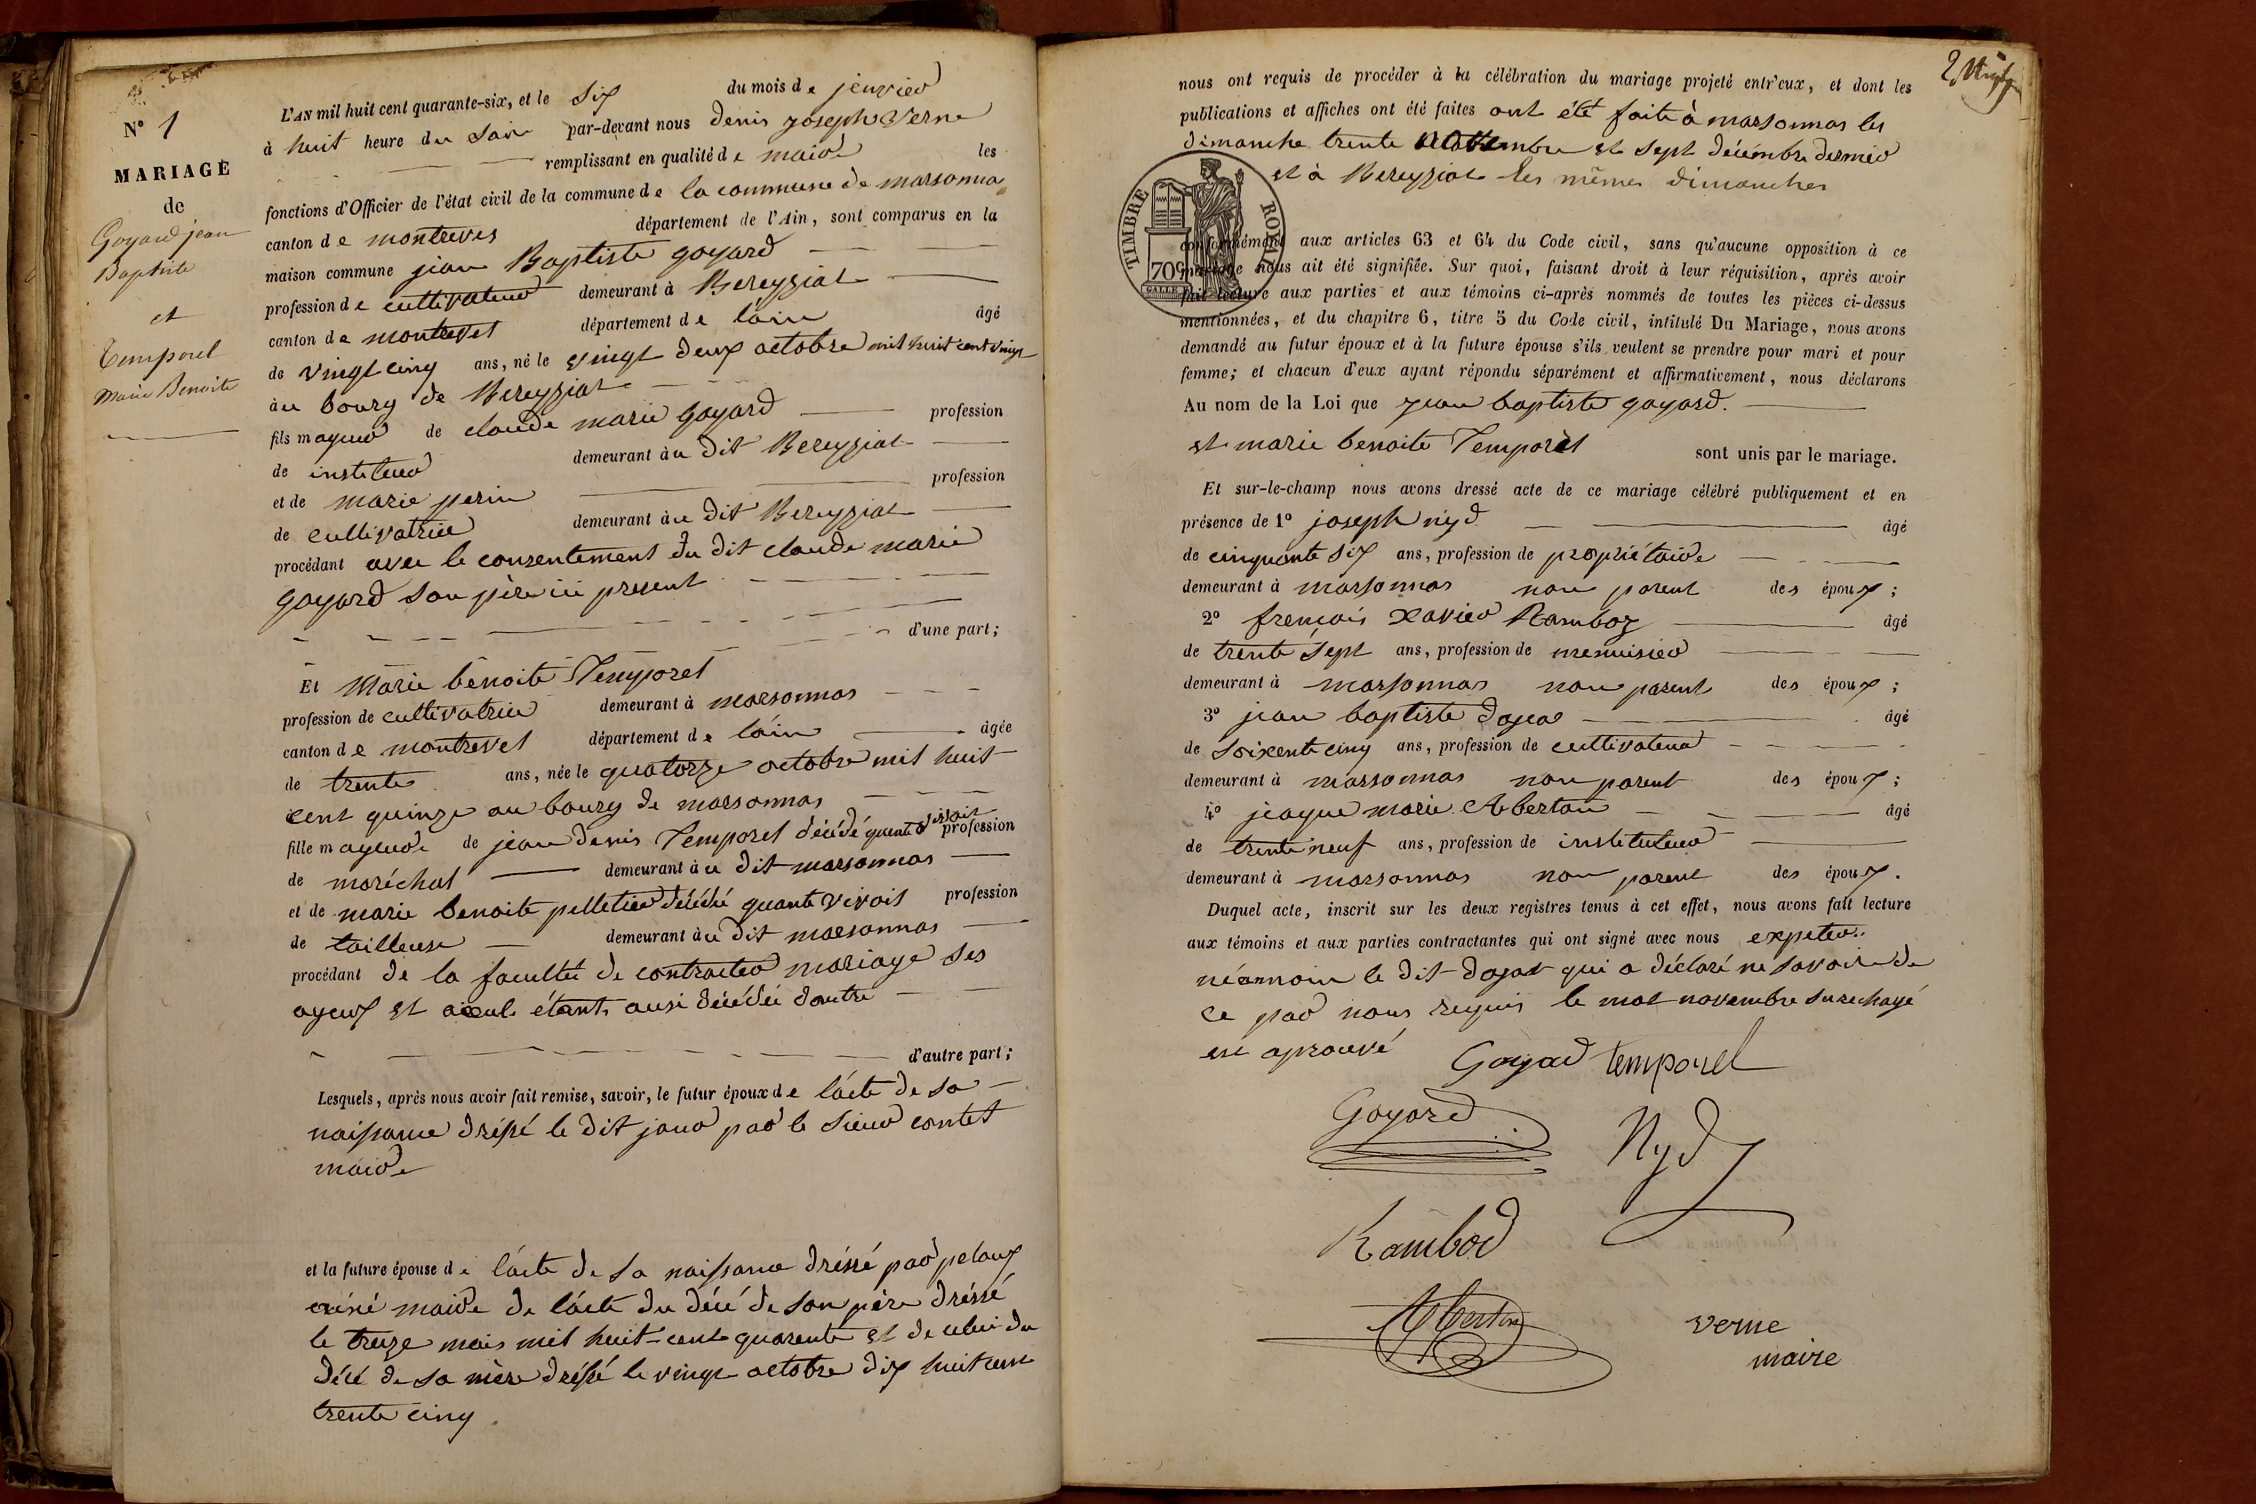 N° 1
MARIAGE
de
Goyard jean
Baptiste
et
Temporel
Marie Benoite
L'AN mil huit cent quarante-six, et le six du mois de jenvier
à huit heure du soir par-devant nous denis joseph Verne
remplissant en qualité de maire les
fonctions d'Officier de l'état civil de la commune de la commune de marsonnas
canton de montrevel département de l'Ain, sont comparus en la
maison commune jean Baptiste goyard
profession de cultivateur demeurant à Bereyziat
canton de montrevel département de l'áin âgé
de vingt cinq ans, né le vingt deux octobre mil huit cent vingt
au bourg de Bereyziat
fils mayeur de claude marie goyard profession
de instituteur demeurant au dit Bereyziat
et de marie perin profession
de cultivatrice demeurant au dit Bereyziat
procédant avec le consentement du dit claude marie
goyard son père ici present
d'une part;
Et Marie bénoite Temporel
profession de cultivatrice demeurant à marsonnas
canton de montrevel département de l'áin âgée
de trente ans, née le quatorze octobre mil huit
cent quinze au bourg de marsonnas
fille mayeure de jean denis Temporel décédé quant vivait profession
de maréchal demeurant au dit marsonnas
et de marie benoite pelletier décédé quant vivois profession
de tailleuse demeurant au dit marsonnas
procédant de la faculté de contracter mariage ses
ayeux et aieule étant ausi décédée doutre
d'autre part;
Lesquels, après nous avoir fait remise, savoir, le futur époux de l'ácte de sa
naissance dréssé le dit jour par le sieur contet
maire
et la future épouse de l'ácte de sa naissance dréssé par peloux
ainé maire de l'ácte du décé de son père dréssé
le treize mais mil huit cent quarente et de celui du
décé de sa mère dréssé le vingt octobre dix huit cent
trente cinq
nous ont requis de procéder à la célébration du mariage projeté entr'eux, et dont les
publications et affiches ont été faites ont été faite à marsonnas les
dimanche trente novembre et sept décémbre dernier
et à Bereyziat les mêmes dimanches
TIMBRE ROYAL
70c
conformément aux articles 63 et 64 du Code civil, sans qu'aucune opposition à ce
mariage nous ait été signifiée. Sur quoi, faisant droit à leur réquisition, après avoir
fait lecture aux parties et aux témoins ci-après nommés de toutes les pièces ci-dessus
mentionnées, et du chapitre 6, titre 5 du Code civil, intitulé Du Mariage, nous avons
demandé au futur époux et à la future épouse s'ils veulent se prendre pour mari et pour
femme; et chacun d'eux ayant répondu séparément et affirmativement, nous déclarons
Au nom de la Loi que jean baptiste goyard.
et marie benoite Temporel sont unis par le mariage.
Et sur-le-champ nous avons dressé acte de ce mariage célébré publiquement et en
présence de 1° joseph nyd âgé
de cinquante six ans, profession de propriétaire
demeurant à marsonnas non parent des époux;
2° françois Xavier Ramboz âgé
de trente sept ans, profession de menuisier
demeurant à marsonnas non parent des époux;
3° jean baptiste doyat âgé
de soixente cinq ans, profession de cultivateur
demeurant à marsonnas non parent des époux;
4° jcaque marie Aberton âgé
de trente neuf ans, profession de instituteur
demeurant à marsonnas non parent des époux.
Duquel acte, inscrit sur les deux registres tenus à cet effet, nous avons fait lecture
aux témoins et aux parties contractantes qui ont signé avec nous
néanmoin le dit doyat qui a déclaré ne savoir de
ce par nous requis le mot novembre surchagé
est aprouvé
Goyard temporel
Goyard Nyd
Rambod
Aberton verne
maire